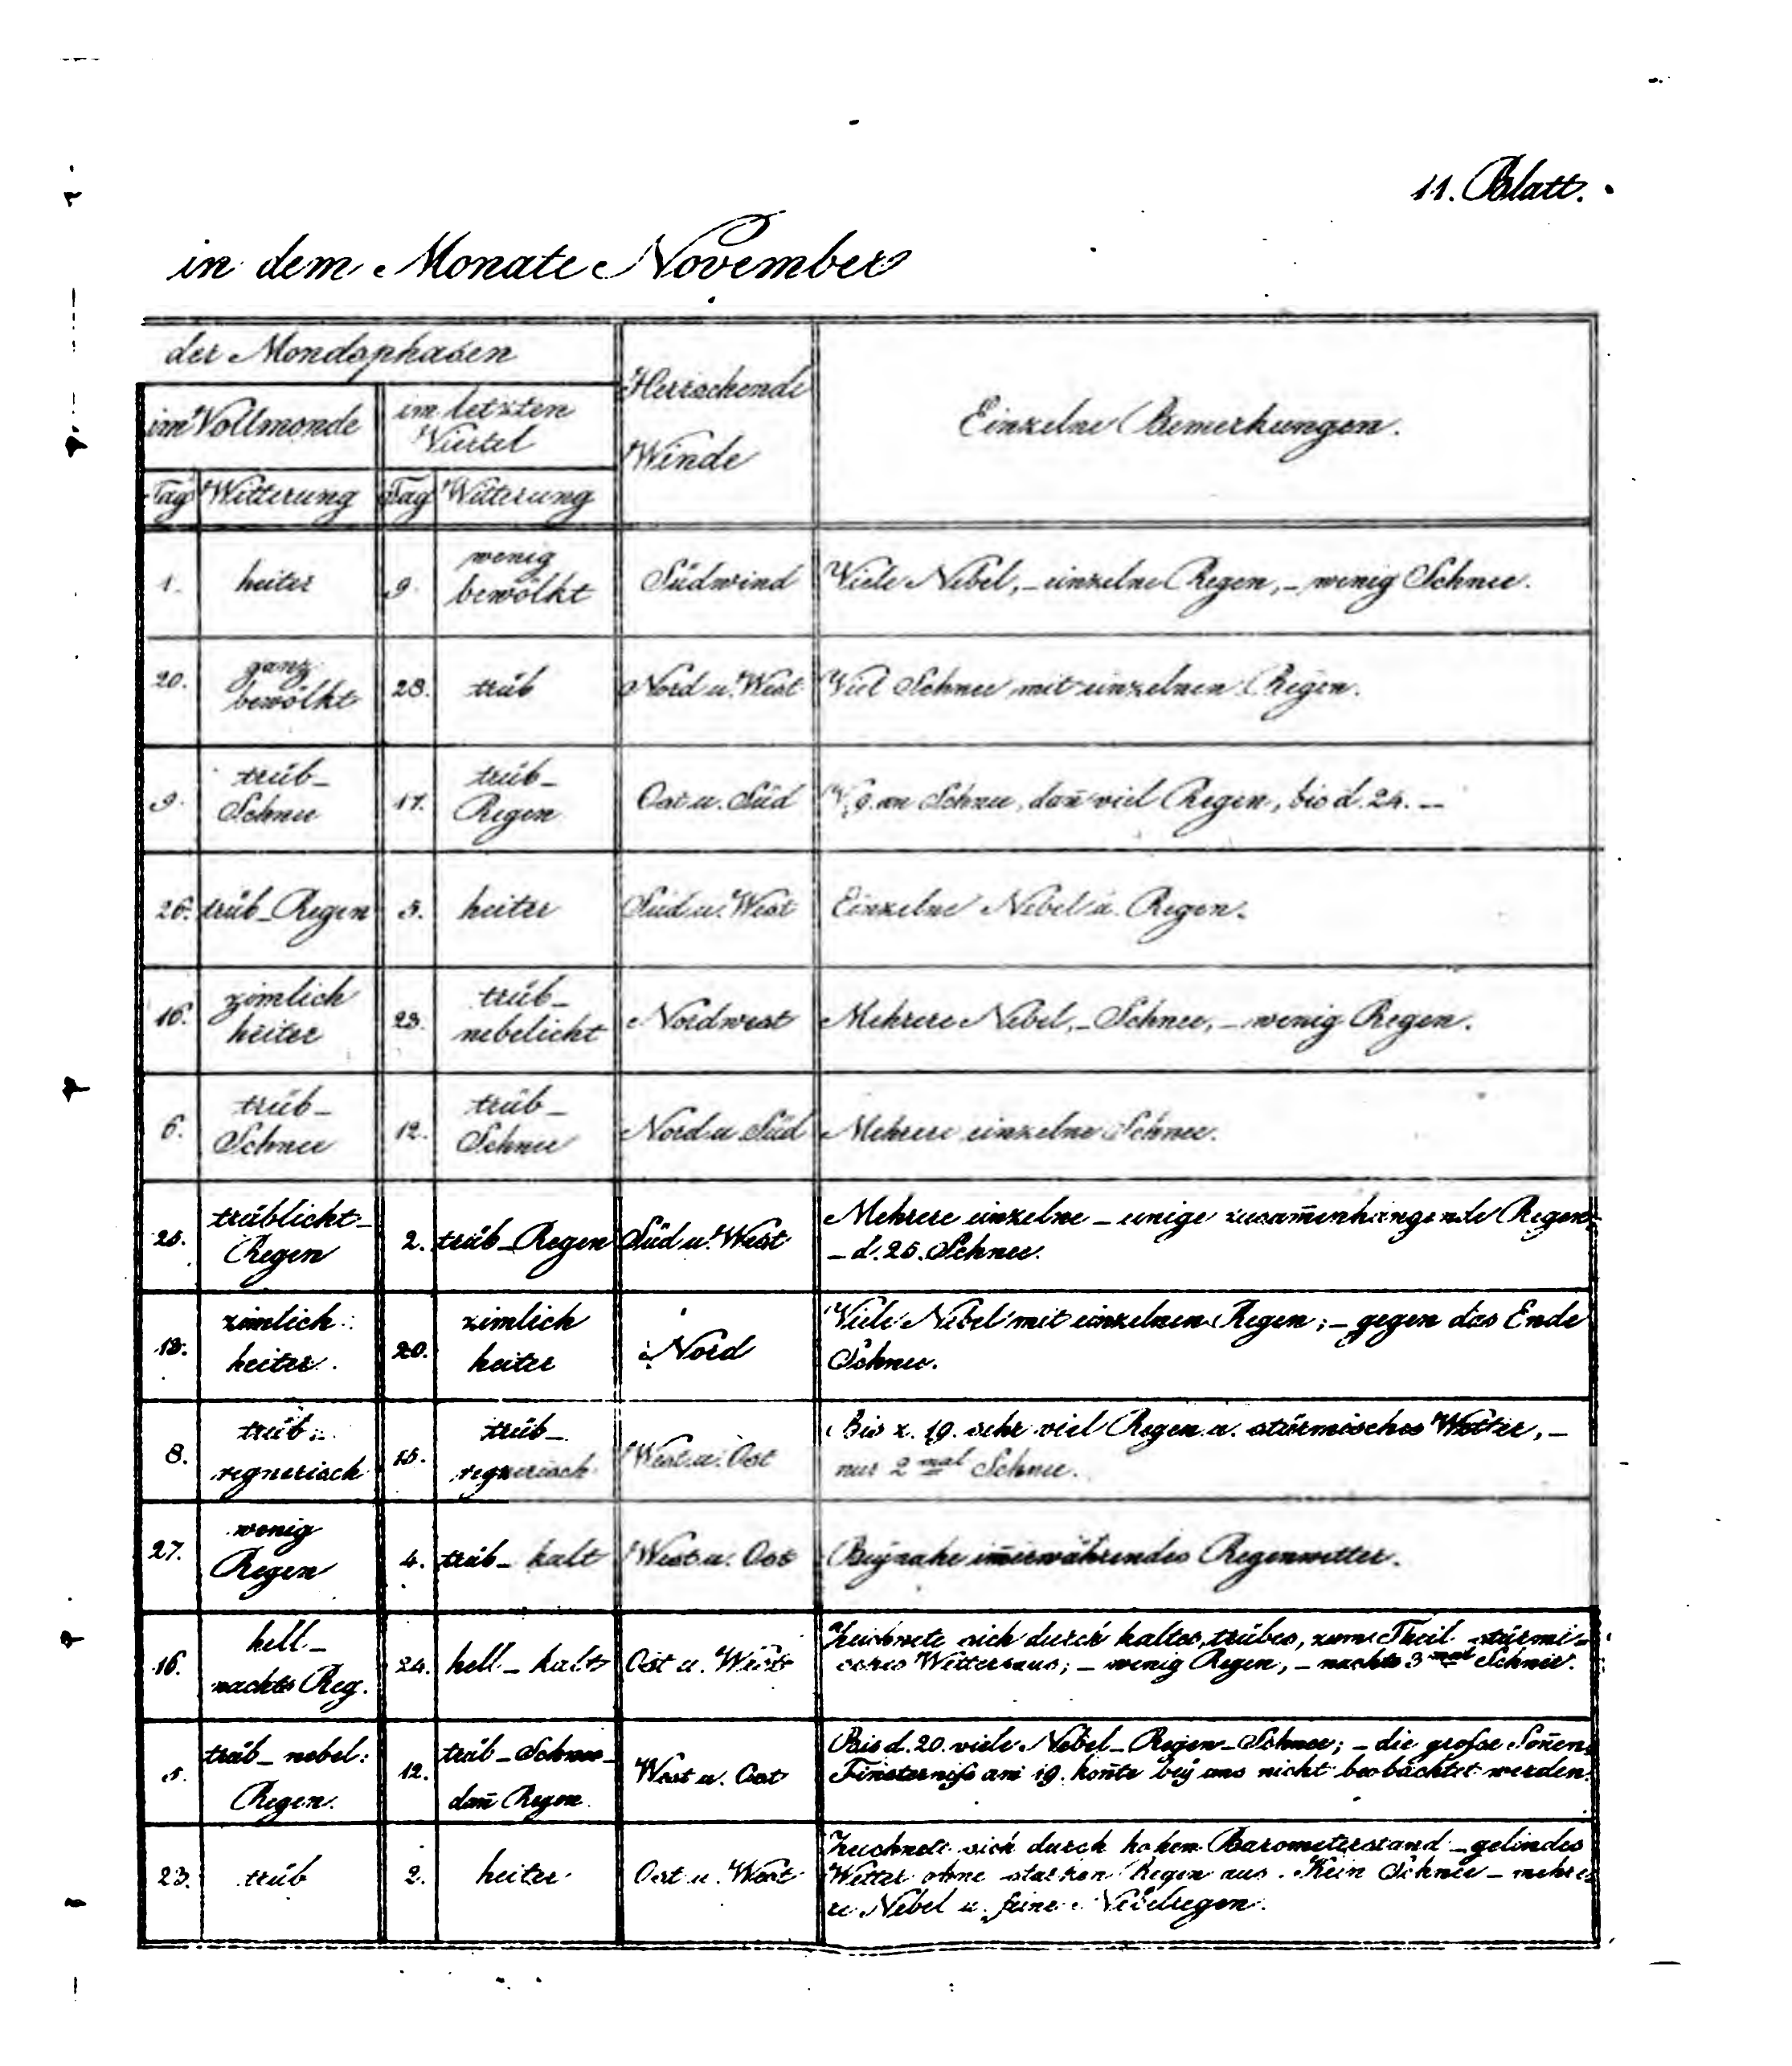 11. Blatt.
in dem Monate November
der Mondsphasen
Herrschende
Winde
Einzelne Bemerkungen.
im Vollmonde
im letzten
Viertel
Tag Witterung Tag Witterung
1. heiter 9. wenig
bewölkt Südwind Viele Nebel, – einzelne Regen, – wenig Schnee.
20. ganz
bewölkt 28. trüb Nord u. West Viel Schnee mit einzelnen Regen.
9. trüb –
Schnee 17. trüb –
Regen Ost u. Süd V. 9. an Schnee, dañ viel Regen, bis d. 24. –
26. trüb – Regen 5. heiter Süd u. West Einzelne Nebel u. Regen.
16. zimlich
heiter 23. trüb –
nebelicht Nordwest Mehrere Nebel, – Schnee, – wenig Regen.
6. trüb –
Schnee 12. trüb –
Schnee Nord u Süd Mehrere einzelne Schnee.
25. trüblicht –
Regen 2. trüb – Regen Süd u. West Mehrere einzelne – einige zusam̄enhangende Regen,
– d. 25. Schnee.
13. zimlich
heiter. 20. zimlich
heiter Nord Viele Nebel mit einzelnen Regen; – gegen das Ende
Schnee.
8. trüb –
regnerisch 15. trüb –
regnerisch West u. Ost Bis z. 19. sehr viel Regen u. stürmisches Wetter, –
nur 2 mal Schnee.
27. wenig
Regen 4. trüb – kalt West u. Ost Beynahe im̄erwährendes Regenwetter.
16. hell –
nachts Reg. 24. hell – kalt Ost u. West Zeichnete sich durch kaltes, trübes, zum Theil stürmi-
sches Wetter aus; – wenig Regen, – nachts 3 mal Schnee.
5. trüb – nebel:
Regen. 12. trüb – Schnee –
dañ Regen. West u. Ost Bis d. 20. viele Nebel – Regen – Schnee; – die große Soñen-
Finsterniß am 19. koñte bey uns nicht beobachtet werden.
23. trüb 2. heiter Ost u. West Zeichnete sich durch hohen Barometerstand – gelindes
Wetter ohne starken Regen aus. Kein Schnee – mehre-
re Nebel u. feine Nebelregen.